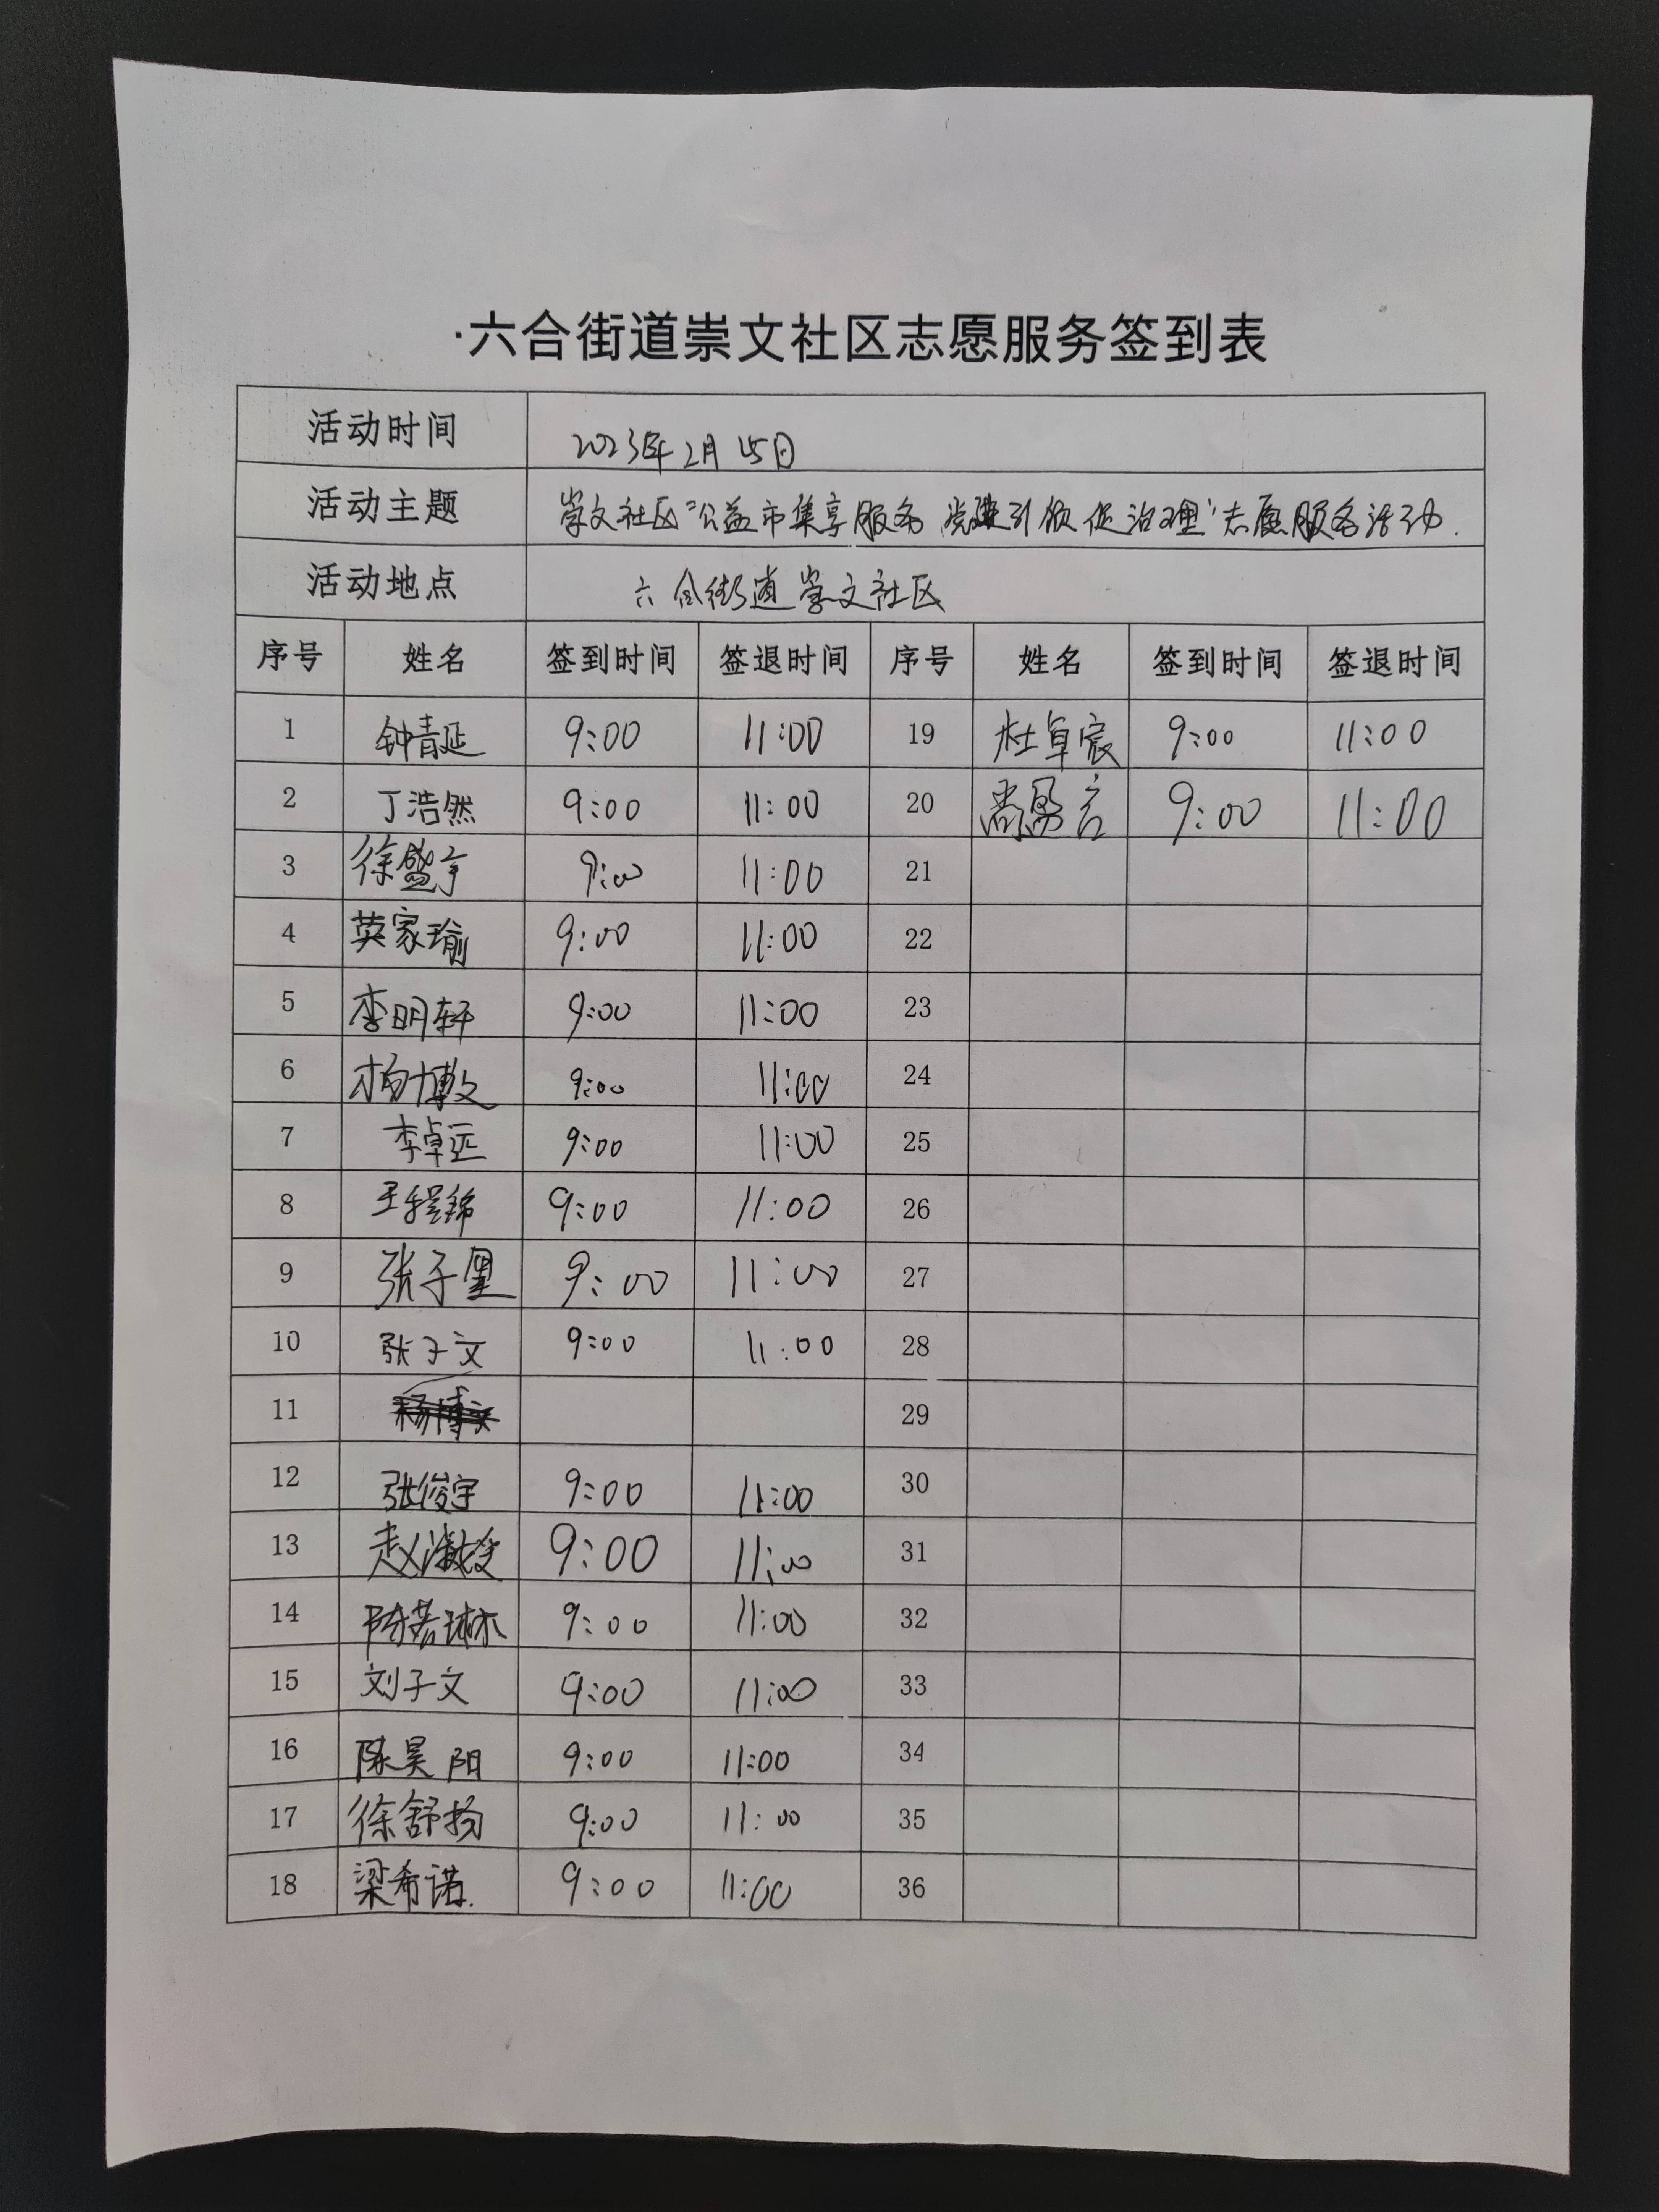 ·六合街道崇文社区志愿服务签到表
活动时间 2023年2月15日
活动主题 崇文社区“公益市集享服务 党建引领促治理”志愿服务活动.
活动地点 六合街道崇文社区
序号 姓名 签到时间 签退时间 序号 姓名 签到时间 签退时间
1 钟青延 9:00 11:00 19 杜卓宸 9:00 11:00
2 丁浩然 9:00 11:00 20 9:00 11:00
3 徐盛宇 9:00 11:00 21
4 英家瑜 9:00 11:00 22
5 李明轩 9:00 11:00 23
6 杨博文 9:00 11:00 24
7 李卓远 9:00 11:00 25
8 王程锦 9:00 11:00 26
9 张子墨 9:00 11:00 27
10 张子文 9:00 11:00 28
11 杨博文 29
12 张俊宇 9:00 11:00 30
13 赵 9:00 11:00 31
14 陈若琳 9:00 11:00 32
15 刘子文 9:00 11:00 33
16 陈昊阳 9:00 11:00 34
17 徐舒扬 9:00 11:00 35
18 梁希诺. 9:00 11:00 36